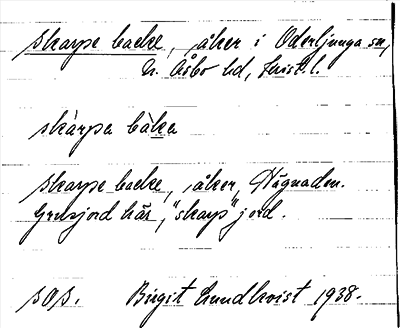 skarpe backe, åker i Oderljunga sn,
N. Åsbo hd, Krist. l.
skàrpa bàka
skarpe backe, åker, Vägnaden.
Grusjord här, "skarp" jord.
sps. Birgit Lundkvist 1938.